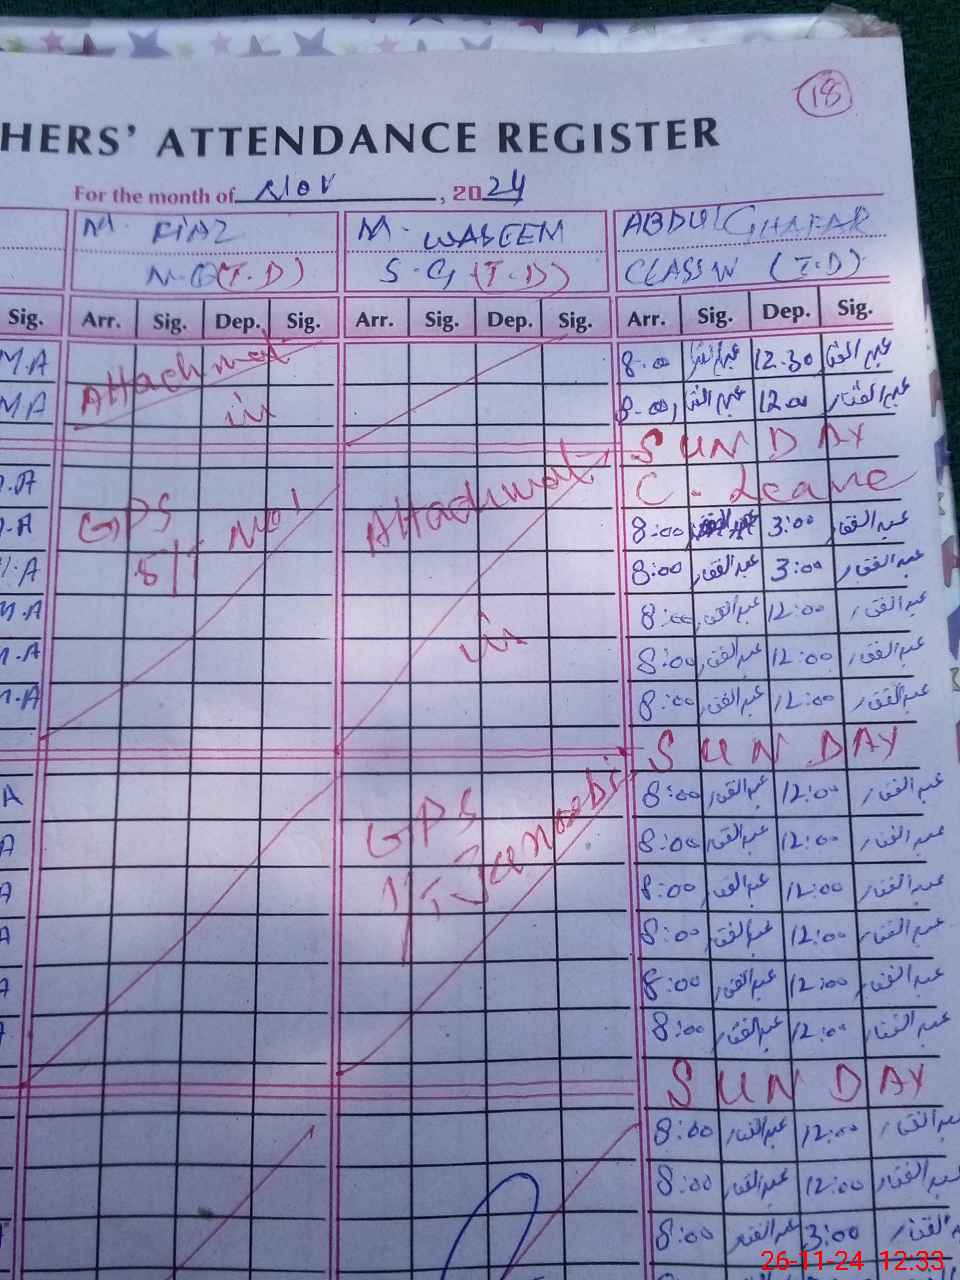 18
HERS' ATTENDANCE REGISTER
For the month of Nov, 2024
M. RIAZ M. WASEEM ABDUL GHAFAR
(T.D) S.G (T.D) CLASS IV (T.D)
Sig. Arr. Sig. Dep. Sig. Arr. Sig. Dep. Sig. Arr. Sig. Dep. Sig.
M.A Attachmat 8:00 12.30
MA in 8:00 عبدالغفار 12:00 عبدالغفار
SUNDAY
M.A Attachmat C-Leave
M.A GPS 8:00 3:00 عبدالغفار
M.A 8:00 عبدالغفار 3:00 عبدالغفار
M.A 8:00 عبدالغفار 12:00 عبدالغفار
M.A in 8:00 عبدالغفار 12:00 عبدالغفار
M.A 8:00 عبدالغفار 12:00 عبدالغفار
SUNDAY
A 8:00 عبدالغفار 12:00 عبدالغفار
A GPS 8:00 عبدالغفار 12:00 عبدالغفار
A 8:00 عبدالغفار 12:00 عبدالغفار
A 8:00 عبدالغفار 12:00 عبدالغفار
A 8:00 عبدالغفار 12:00 عبدالغفار
8:00 عبدالغفار 12:00 عبدالغفار
SUNDAY
8:00 عبدالغفار 12:00 عبدالغفار
8:00 عبدالغفار 12:00 عبدالغفار
8:00 عبدالغفار 3:00 عبدالغفار
26-11-24 12:33